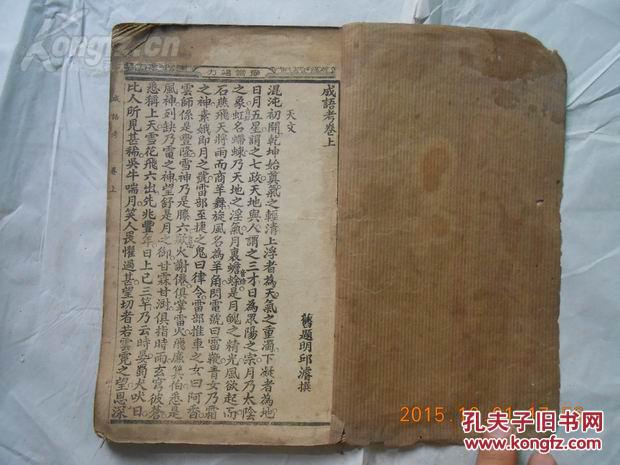 成語考卷上
天文
舊題明邱濬撰
混沌初開乾坤始奠氣之輕清上浮者為天氣之重濁下凝者為地
日月五星謂之七政天地與人謂之三才日為眾陽之宗月乃太陰
之象虹名螮蝀乃天地之淫氣月裏蟾蜍是月魄之精光風欲起而
石燕飛天將雨而商羊舞旋風名為羊角閃電號曰雷鞭青女乃霜
之神素娥即月之號雷部至捷之鬼曰律令雷部推車之女曰阿香
雲師係是豐隆雪神乃是滕六欻火謝仙俱掌雷火飛廉箕伯悉是
風神列缺乃電之神望舒是月之御甘霖甘澍俱指時雨玄穹彼蒼
悉稱上天雪花飛六出先兆豐年日上已三竿乃云時晏蜀犬吠日
比人所見甚稀吳牛喘月笑人畏懼過甚望切者若雲霓之望恩深
成語考 卷上
孔夫子旧书网
www.kongfz.com